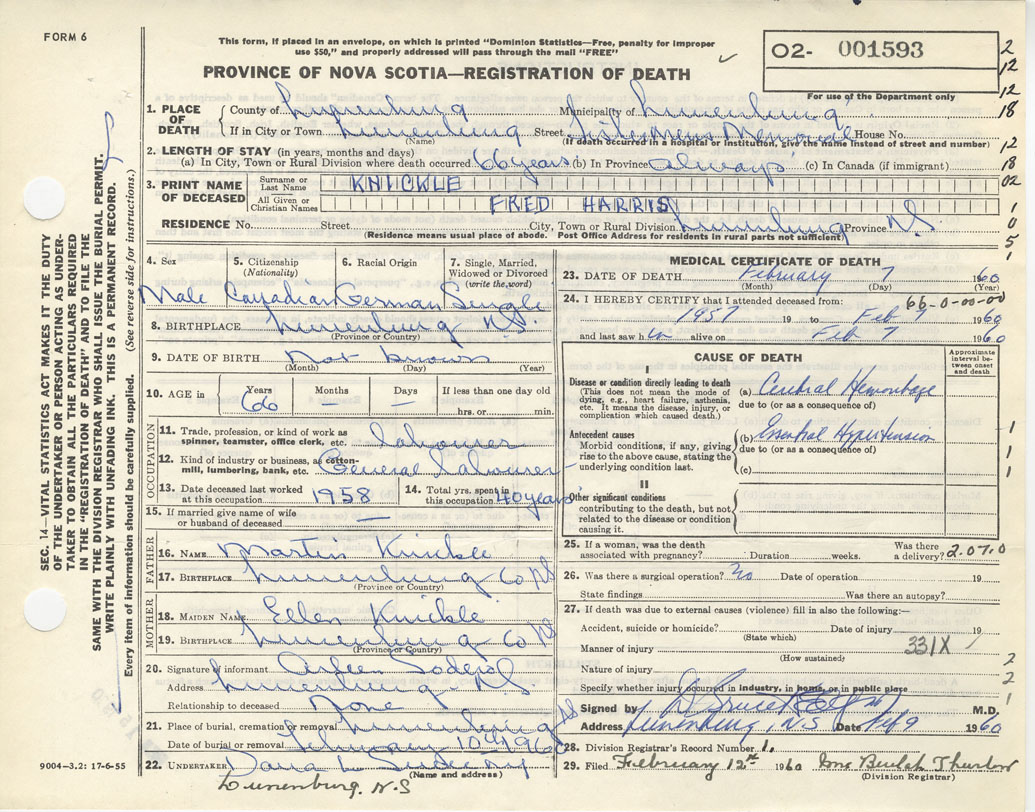 FORM 6
This form, if placed in an envelope, on which is printed "Dominion Statistics—Free, penalty for improper
use $50," and properly addressed will pass through the mail "FREE"
02- 001593
For use of the Department only
PROVINCE OF NOVA SCOTIA—REGISTRATION OF DEATH
1. PLACE OF DEATH
County of Lunenburg Municipality of Lunenburg
If in City or Town Lunenburg Street Memorial House No.
(Name) (If death occurred in a hospital or institution, give the name instead of street and number)
2. LENGTH OF STAY (in years, months and days)
(a) In City, Town or Rural Division where death occurred 66 years (b) In Province always (c) In Canada (if immigrant)
3. PRINT NAME OF DECEASED
Surname or Last Name KNICKLE
All Given or Christian Names FRED HARRIS
RESIDENCE No. Street City, Town or Rural Division Lunenburg Province N.S
(Residence means usual place of abode. Post Office Address for residents in rural parts not sufficient)
4. Sex Male
5. Citizenship (Nationality) Canadian
6. Racial Origin German
7. Single, Married, Widowed or Divorced (write the word) Single
8. BIRTHPLACE Lunenburg N.S.
(Province or Country)
9. DATE OF BIRTH Not known
(Month) (Day) (Year)
10. AGE in Years 66 Months — Days — If less than one day old hrs. or min.
OCCUPATION
11. Trade, profession, or kind of work as spinner, teamster, office clerk, etc. labourer
12. Kind of industry or business, as cotton-mill, lumbering, bank, etc. General labourer
13. Date deceased last worked at this occupation 1958
14. Total yrs. spent in this occupation 40 years
15. If married give name of wife or husband of deceased —
FATHER
16. NAME Martin Knickle
17. BIRTHPLACE Lunenburg Co NS
(Province or Country)
MOTHER
18. MAIDEN NAME Ellen Knickle
19. BIRTHPLACE Lunenburg Co NS
(Province or Country)
20. Signature of informant
Address Lunenburg NS
Relationship to deceased None
21. Place of burial, cremation or removal Lunenburg NS
Date of burial or removal February 10 1960
22. UNDERTAKER
(Name and address)
Lunenburg. N.S
9004—3.2: 17-6-55
MEDICAL CERTIFICATE OF DEATH
23. DATE OF DEATH February 7 1960
(Month) (Day) (Year)
24. I HEREBY CERTIFY that I attended deceased from: 66-0-00-00
1957 19 to Feb 7 1960
and last saw him alive on Feb 7 1960
CAUSE OF DEATH
Approximate interval between onset and death
I
Disease or condition directly leading to death
(This does not mean the mode of dying, e.g., heart failure, asthenia, etc. It means the disease, injury, or complication which caused death.)
(a) Cerebral Hemorrhage
due to (or as a consequence of)
Antecedent causes
Morbid conditions, if any, giving rise to the above cause, stating the underlying condition last.
(b) Essential Hypertension
due to (or as a consequence of)
(c)
II
Other significant conditions
contributing to the death, but not related to the disease or condition causing it.
25. If a woman, was the death associated with pregnancy? Duration weeks. Was there a delivery? 2.07.0
26. Was there a surgical operation? no Date of operation 19
State findings Was there an autopsy?
27. If death was due to external causes (violence) fill in also the following:—
Accident, suicide or homicide? Date of injury 19
(State which)
Manner of injury 331X
(How sustained)
Nature of injury
Specify whether injury occurred in industry, in home, or in public place
Signed by M.D.
Address Lunenburg, N.S Date Feb 9 1960
28. Division Registrar's Record Number 1.
29. Filed February 12th 1960 Mrs Beulah Thurlow
(Division Registrar)
SEC. 14—VITAL STATISTICS ACT MAKES IT THE DUTY
OF THE UNDERTAKER OR PERSON ACTING AS UNDER-
TAKER TO OBTAIN ALL THE PARTICULARS REQUIRED
IN THE "REGISTRATION OF DEATH" AND TO FILE THE
SAME WITH THE DIVISION REGISTRAR WHO SHALL ISSUE THE BURIAL PERMIT.
WRITE PLAINLY WITH UNFADING INK. THIS IS A PERMANENT RECORD.
Every item of information should be carefully supplied. (See reverse side for instructions.)
2
12
12
18
12
18
02
1
0
5
1
1
1
1
2
2
1